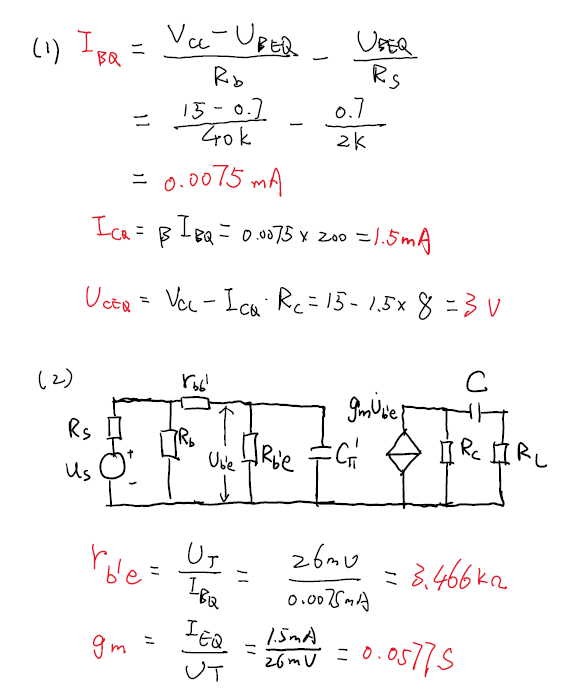 (1) I_BQ = (V_CC - U_BEQ)/R_b - U_BEQ/R_S
= (15 - 0.7)/40k - 0.7/2k
= 0.0075 mA
I_CQ = β I_BQ = 0.0075 × 200 = 1.5 mA
U_CEQ = V_CC - I_CQ · R_C = 15 - 1.5 × 8 = 3 V
(2)
r_bb' g_m U̇_b'e C
R_S R_b U_b'e R_b'e C_π' R_C R_L
u_s + -
r_b'e = U_T/I_BQ = 26mV/0.0075mA = 3.466kΩ
g_m = I_EQ/U_T = 1.5mA/26mV = 0.0577S